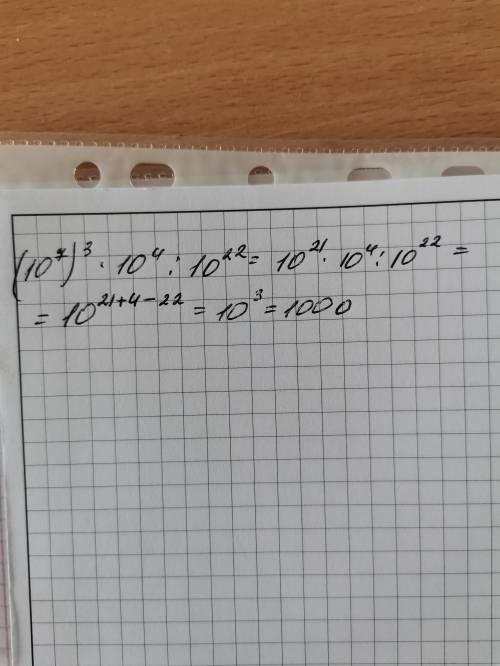 (10⁷)³ · 10⁴ : 10²² = 10²¹ · 10⁴ : 10²² =
= 10²¹⁺⁴⁻²² = 10³ = 1000